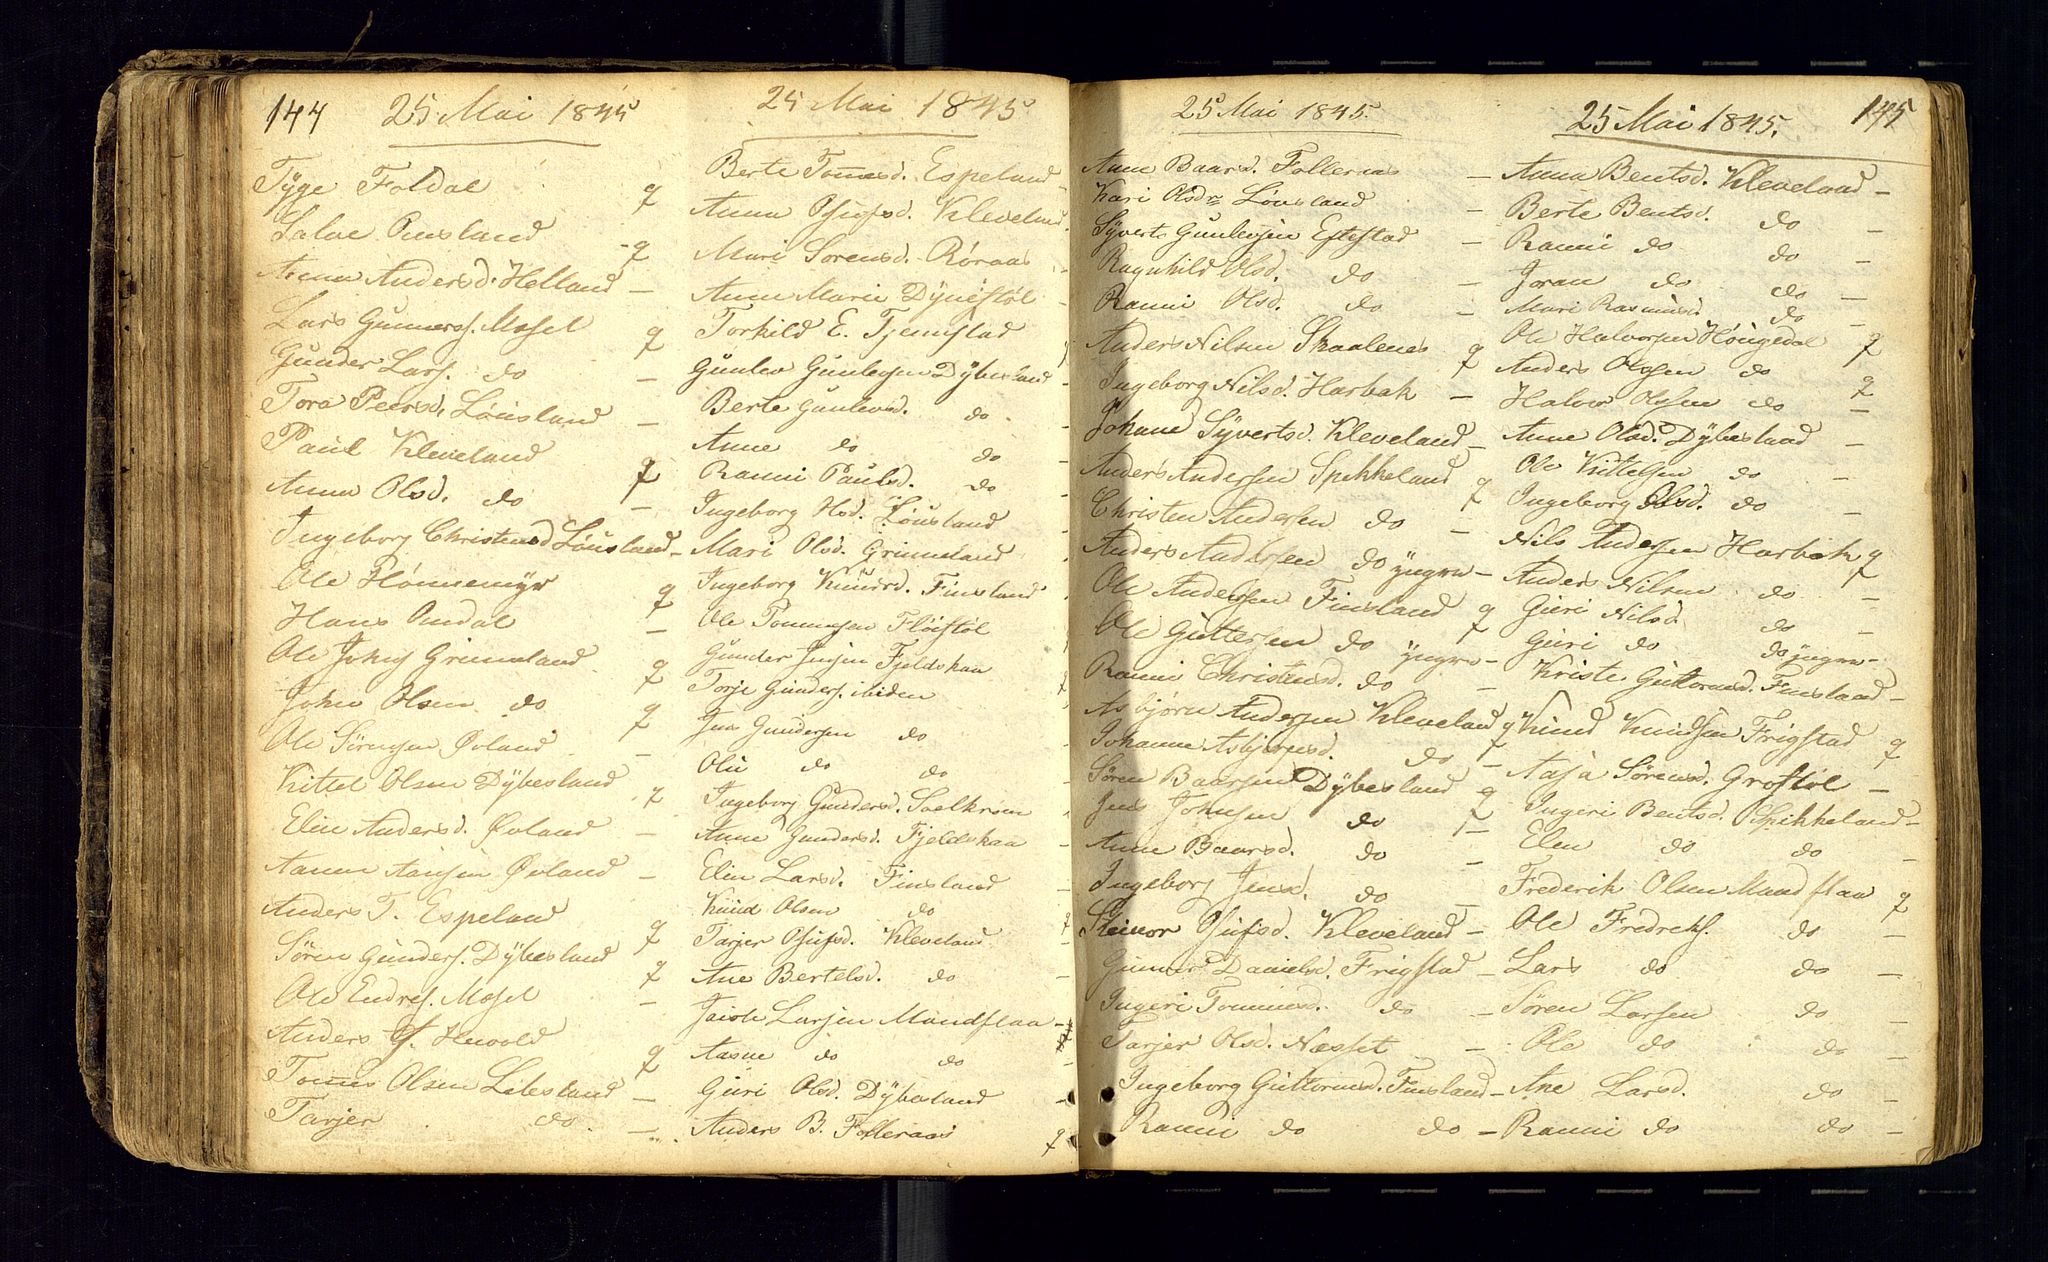 144
25 Mai 1845
Tÿge Foldal q
Salve Omsland - q
Anna Andersd. Helland -
Lars Gunners. Mosel q
Gunder Lars. do -
Tora Peersd. Løusland -
Paul Kleveland q
Anna Olsd. do -
Ingeborg Christensd Løusland -
Ole Hønnemÿr q
Hans Omdal -
Ole Johns Grimeland q
John Olsen do q
Ole Sørensen Øvland -
Kittel Olsen Dÿbesland q
Elin Andersd. Øvland -
Aanen Aansen Øvland -
Anders T. Espeland q
Søren Gunders. Dÿbesland q
Ole Endres. Mosel -
Anders Hevold q
Tomes Olsen Lilesland -
Tarjer do -
25 Mai 1845
Berte Tomesd. Espeland -
Anna Osufsd. Kleveland
Mari Sorensd. Røraas
Anne Marie Dÿnestøl -
Torkild E. Tjemstad
Gunlev Gunlevsen Dÿbesland -
Berte Gunlevsd. do
Anne do do
Ranni Paulsd. do -
Ingeborg Hsd. Løusland
Mari Olsd. Grimeland
Ingeborg Knudsd. Finsland
Ole Tommesen Fløistøl
Gunder Jensen Fjeldskaa
Torje Gunders. ibiden q
Jens Gundersen do
Oliv do do
Ingeborg Gundersd. Soelkroen
Anne Gundersd. Fjeldskaa -
Elin Larsd. Finsland -
Knud Olsen do q
Tarjer Osufsd. Kleveland -
Ane Bertelsd. do -
Jacob Larsen Mandflaa -
Aasne do do -
Guri Olsd. Dÿbesland -
Anders B. Folleraas q
25 Mai 1845.
Anne Baarsd. Folleraas -
Kari Olsdr Løusland -
Sÿvert Gunlevsen Eftestad -
Ragnhild Olsd. do -
Ranni Olsd. do -
Anders Nilsen Skaalenes q
Ingeborg Nilsd. Harbak -
Johane Sÿvertsd. Kleveland -
Anders Andersen Spikkeland q
Christen Andersen do -
Anders Andersen do ÿngre -
Ole Andersen Finsland q
Ole Guttersen do ÿngre -
Ranni Christensd. do -
Asbjørn Andersen Kleveland q
Johanne Asbjørnsd. do -
Søren Baarsen Dÿbesland q
Jens Johnsen do -
Anne Baarsd. do -
Ingeborg Jensd. do -
Steinor Osufsd. Kleveland -
Gunner Danielsd. Frigstad -
Ingeri Tommesd. do -
Tarjer Olsd. Næsset -
Ingeborg Guttormsd. Finsland -
Ranni do do -
25 Mai 1845.
145
Anna Bentsd. Kleveland -
Berte Bentsd. do -
Ranni do do -
Joran do do -
Mari Rasmusd do -
Ole Halvorsen Høugedal q
Anders Olsen do q
Halvor Olsen do -
Anne Olsd. Dÿbesland -
Ole Kittelsen do -
Ingeborg Olsd. do -
Nils Andersen Harbak q
Anders Nilsen do -
Guri Nilsd do -
Guri do do ÿngre -
Kriste Guttormsd. Finsland -
Knud Knudsen Frigstad q
Aasa Sørensd. Grostøl -
Ingeri Bentsd. Spikkeland -
Elen do do -
Frederik Olsen Mandflaa q
Ole Fredriks. do -
Lars do do -
Søren Larsen do -
Ole do do -
Ane Larsd. do -
Ranni do do -